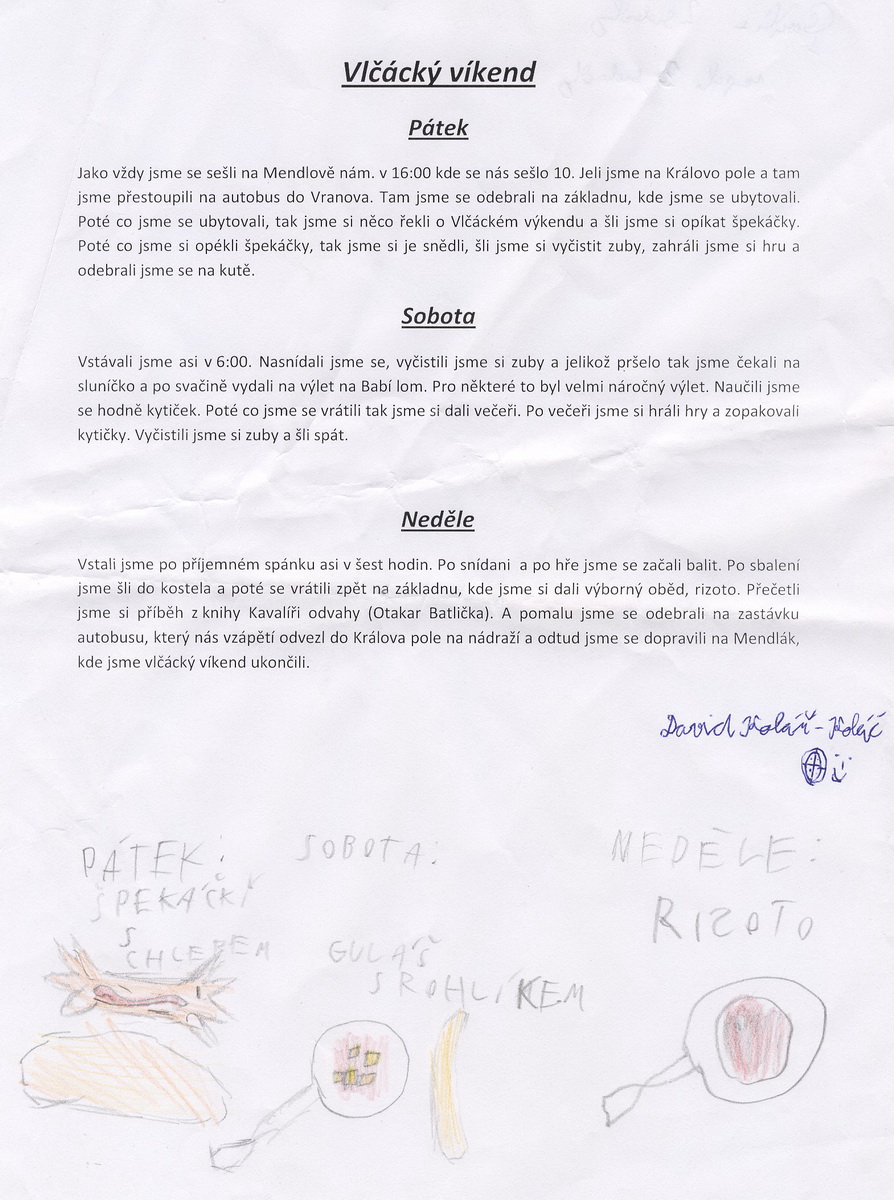 Vlčácký víkend
Pátek
Jako vždy jsme se sešli na Mendlově nám. v 16:00 kde se nás sešlo 10. Jeli jsme na Královo pole a tam
jsme přestoupili na autobus do Vranova. Tam jsme se odebrali na základnu, kde jsme se ubytovali.
Poté co jsme se ubytovali, tak jsme si něco řekli o Vlčáckém výkendu a šli jsme si opíkat špekáčky.
Poté co jsme si opékli špekáčky, tak jsme si je snědli, šli jsme si vyčistit zuby, zahráli jsme si hru a
odebrali jsme se na kutě.
Sobota
Vstávali jsme asi v 6:00. Nasnídali jsme se, vyčistili jsme si zuby a jelikož pršelo tak jsme čekali na
sluníčko a po svačině vydali na výlet na Babí lom. Pro některé to byl velmi náročný výlet. Naučili jsme
se hodně kytiček. Poté co jsme se vrátili tak jsme si dali večeři. Po večeři jsme si hráli hry a zopakovali
kytičky. Vyčistili jsme si zuby a šli spát.
Neděle
Vstali jsme po příjemném spánku asi v šest hodin. Po snídani a po hře jsme se začali balit. Po sbalení
jsme šli do kostela a poté se vrátili zpět na základnu, kde jsme si dali výborný oběd, rizoto. Přečetli
jsme si příběh z knihy Kavalíři odvahy (Otakar Batlička). A pomalu jsme se odebrali na zastávku
autobusu, který nás vzápětí odvezl do Králova pole na nádraží a odtud jsme se dopravili na Mendlák,
kde jsme vlčácký víkend ukončili.
David Kolář - Koláč
PÁTEK:
ŠPEKÁČKÝ
S
CHLEBEM
SOBOTA:
GULÁŠ
S ROHLÍKEM
NEDĚLE:
RIZOTO